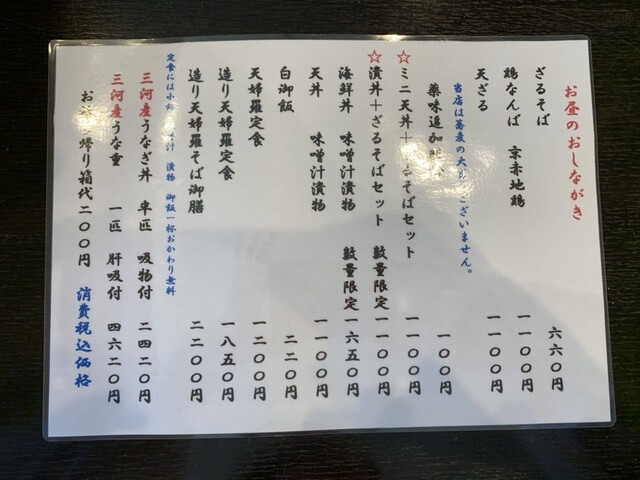 お昼のおしながき
ざるそば 六六〇円
鶏なんば 京赤地鶏 一一〇〇円
天ざる 一一〇〇円
当店は蕎麦の大 ございません。
薬味追加 一〇〇円
☆ミニ天丼＋ るそばセット 一一〇〇円
☆漬丼＋ざるそばセット 数量限定 一一〇〇円
海鮮丼 味噌汁漬物 数量限定 一六五〇円
天丼 味噌汁漬物 一一〇〇円
白御飯 二二〇円
天婦羅定食 一二〇〇円
造り天婦羅定食 一八五〇円
造り天婦羅そば御膳 二二〇〇円
定食には小 汁 漬物 御飯一杯おかわり無料
三河産うなぎ丼 半匹 吸物付 二四二〇円
三河産うな重 一匹 肝吸付 四六二〇円
お 帰り箱代二〇〇円 消費税込価格